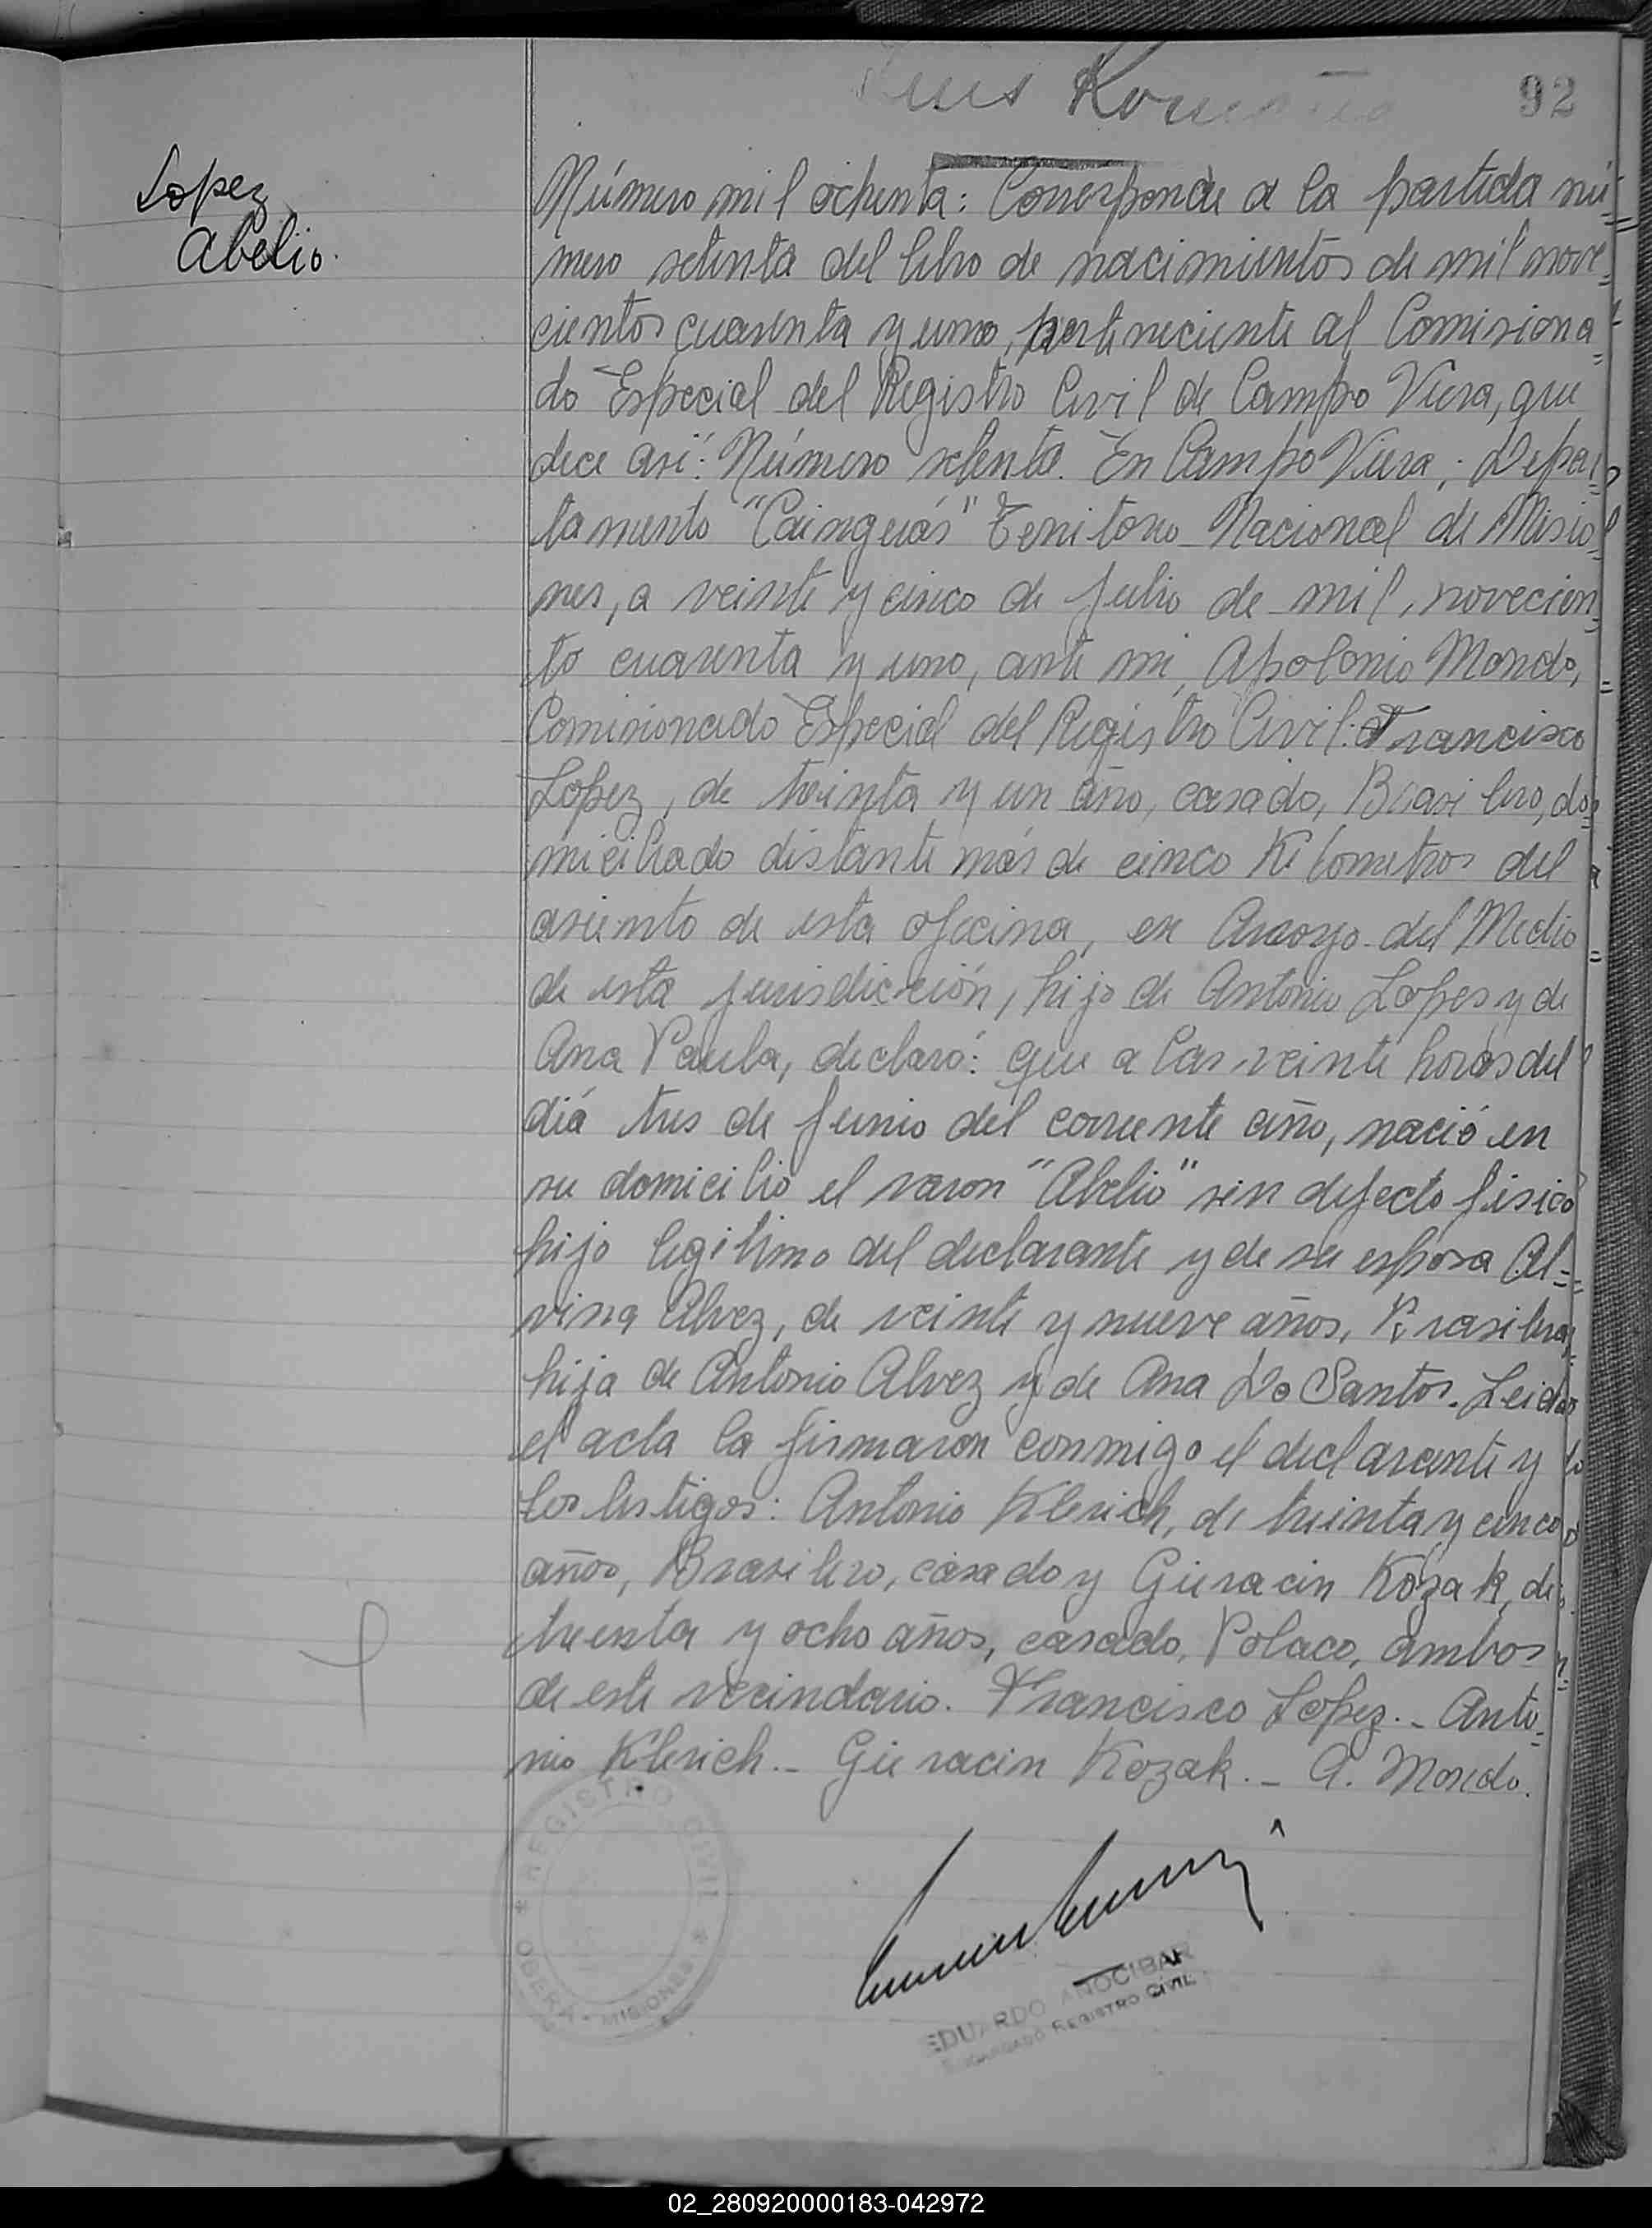 92
Lopez
Abelio.
Número mil ochenta: Corresponde a la partida nú=
mero setenta del libro de nacimientos de mil nove=
cientos cuarenta y uno, perteneciente al Comisiona=
do Especial del Registro Civil de Campo Viera, que
dice así: Número setenta. En Campo Viera, Depar=
tamento "Cainguás" Territorio Nacional de Misio=
nes, a veinte y cinco de Julio de mil, novecien=
to cuarenta y uno, ante mi, Apolonio Mondo,
Comisionado Especial del Registro Civil: Francisco
Lopez, de treinta y un año, casado, Brasilero, do=
miciliado distante más de cinco Kilometros del
asiento de esta oficina, en Arroyo del Medio
de esta jurisdicción, hijo de Antonio Lopes y de
Ana Paula, declaró: que a las veinte horas del
día tres de Junio del corriente año, nació en
su domicilio el varon "Abelio" sin defecto fisico
hijo legitimo del declarante y de su esposa Al=
vina Alvez, de veinte y nueve años, Brasilera,
hija de Antonio Alvez y de Ana Do Santos. Leida
el acta la firmaron conmigo el declarante y
los testigos: Antonio Klerich, de treinta y cinco
años, Brasilero, casado y Gieracin Kozak, de
treinta y ocho años, casado, Polaco, ambos
de este vecindario. Francisco Lopez.- Anto=
nio Klerich.- Gieracin Kozak.- A. Mondo.
REGISTRO CIVIL
OBERA - MISIONES
EDUARDO AÑOCIBAR
ENCARGADO REGISTRO CIVIL
02_280920000183-042972